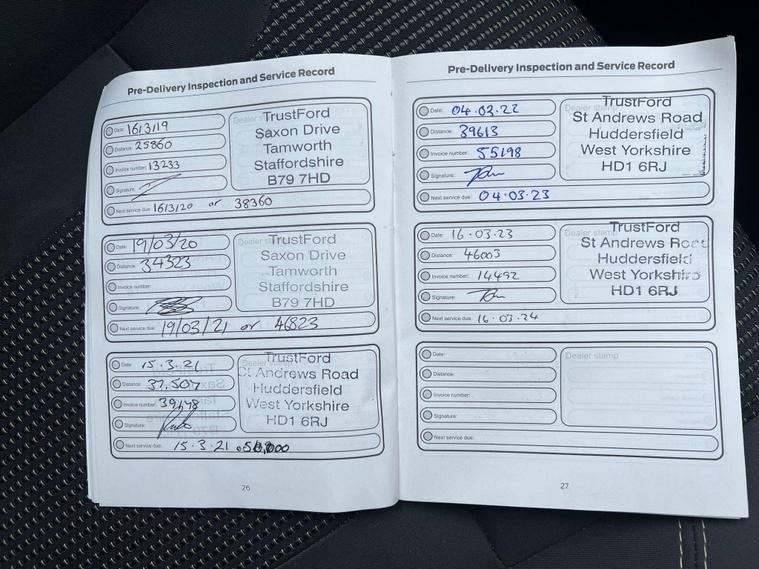 Pre-Delivery Inspection and Service Record
Date: 16/3/19
Distance: 25860
Invoice number: 13233
Signature:
Next service due: 16/3/20 or 38360
Dealer stamp
TrustFord
Saxon Drive
Tamworth
Staffordshire
B79 7HD
Date: 19/03/20
Distance: 34323
Invoice number:
Signature:
Next service due: 19/03/21 or 46823
Dealer stamp
TrustFord
Saxon Drive
Tamworth
Staffordshire
B79 7HD
Date: 15.3.21
Distance: 37,507
Invoice number: 39148
Signature:
Next service due: 15.3.21
Dealer stamp
TrustFord
St Andrews Road
Huddersfield
West Yorkshire
HD1 6RJ
26
Pre-Delivery Inspection and Service Record
Date: 04.03.22
Distance: 39613
Invoice number: 55198
Signature:
Next service due: 04.03.23
Dealer stamp
TrustFord
St Andrews Road
Huddersfield
West Yorkshire
HD1 6RJ
Date: 16.03.23
Distance: 46003
Invoice number: 14492
Signature:
Next service due: 16.03.24
Dealer stamp
TrustFord
St Andrews Road
Huddersfield
West Yorkshire
HD1 6RJ
Date:
Distance:
Invoice number:
Signature:
Next service due:
Dealer stamp
27